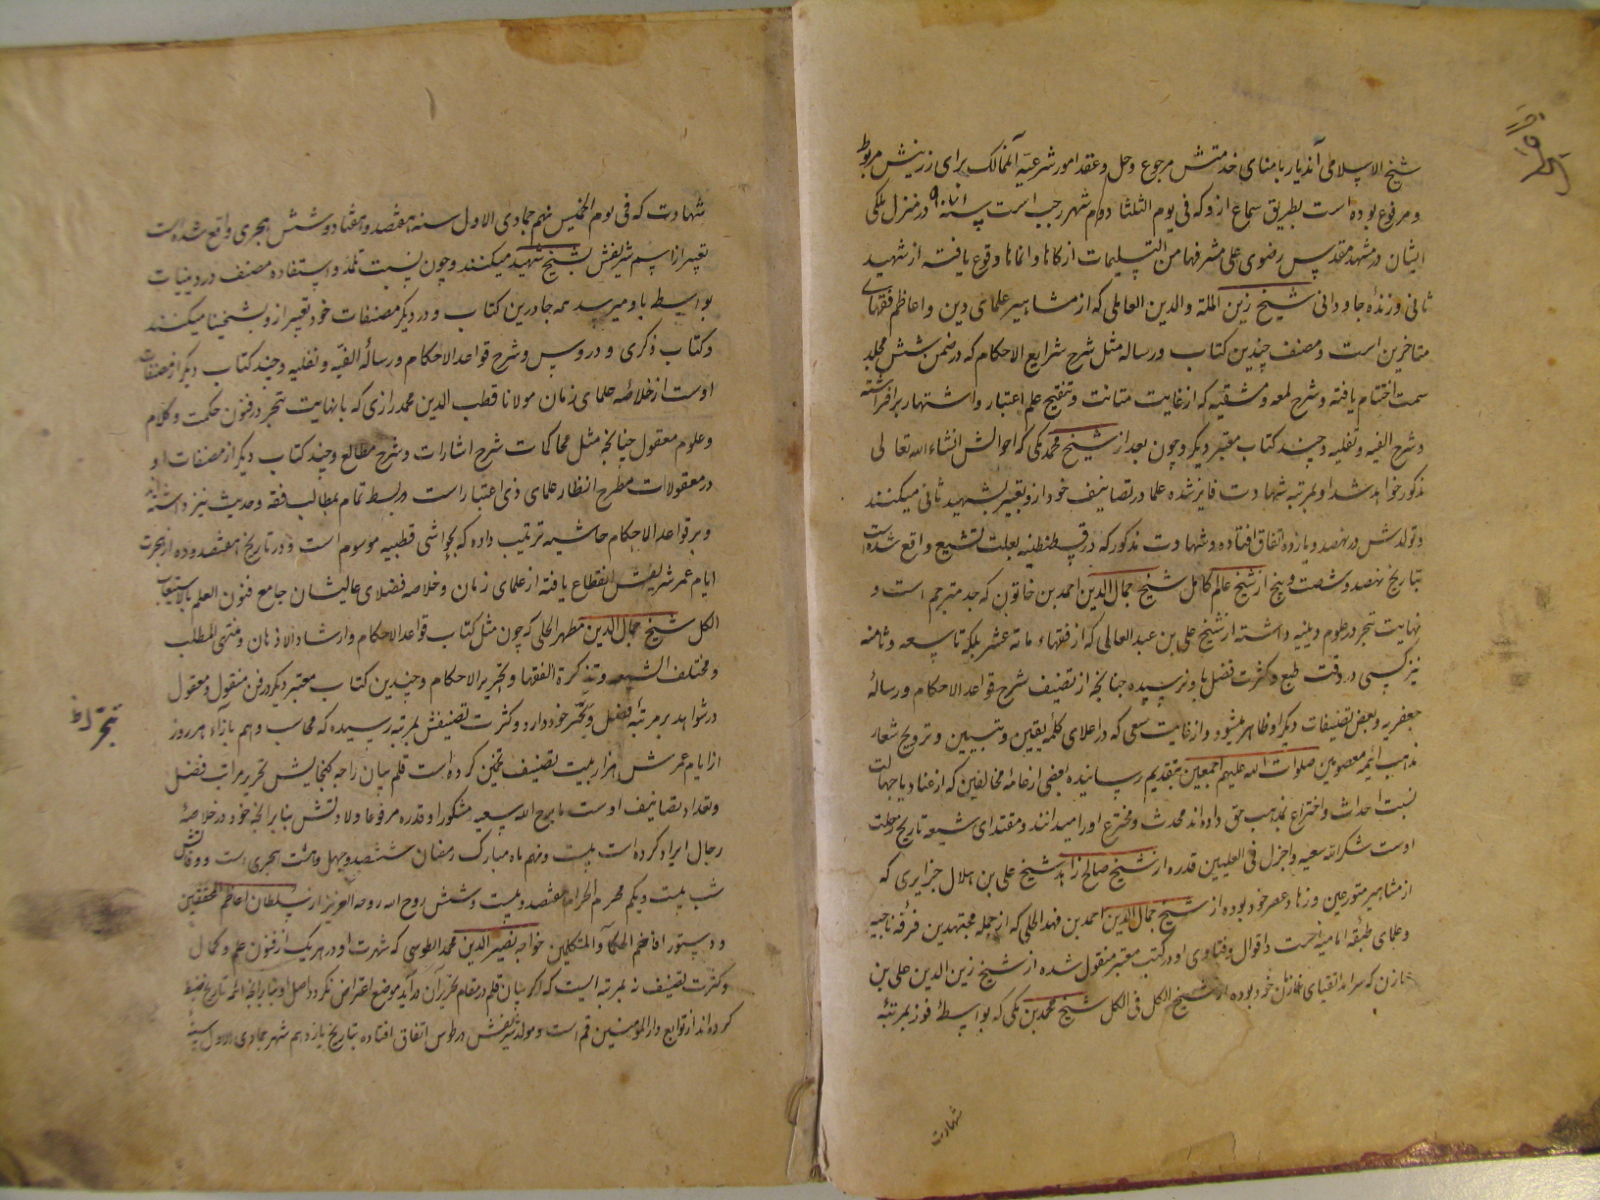 شیخ الاسلامی آندیار بامنای خدمتش مرجوع وحل وعقد امور شرعیة آنممالک برای زرینش مربوط
ومرفوع بوده است بطریق سماع ازو که فی یوم الثلثا دوم شهر رجب است در منزل ملکی
ایشان در مشهد مقدس رضوی علی مشرفها من التسلیمات ازکاها وانماها وقوع یافته از شهید
ثانی وزندهٔ جاودانی شیخ زین الملة والدین العاملی که از مشاهیر علمای دین واعاظم فقهای
متاخرین است ومصنف چندین کتاب ورساله مثل شرح شرایع الاحکام که در ضمن شش مجلد
سمت اختتام یافته وشرح لمعه ومشقیه که از غایت متانت وتنقیح علم اعتبار واشتهار برافراشته
وشرح الفیه ونفلیه وچند کتاب معتبر دیگر وچون بعد از شیخ محمد مکی که احوالش انشاء الله تعالی
مذکور خواهد شد او بمرتبه شهادت فایز شده علما در تصانیف خود ازو تعبیر بشهید ثانی میکنند
وتولدش در نهصد ویازده اتفاق افتاده وشهادت مذکور که در قسطنطنیه بعلت تشیع واقع شده است
بتاریخ نهصد وشصت وپنج از شیخ عالم کامل شیخ جمال الدین احمد بن خاتون که جد مترجم است و
نهایت تبحر در علوم دینیه داشته از شیخ علی بن عبد العالی که از فقهاء مائه عشر بلکه تاسعه وثامنه
نیز کسی در دقت طبع وکثرت فضل باو نرسیده چنانچه از تصنیف شرح قواعد الاحکام ورسالهٔ
جعفریه وبعض تصنیفات دیگر او ظاهر میشود واز غایت سعی که در اعلای کلمهٔ یقین وتبیین وترویج شعار
مذهب ائمه معصومین صلوات الله علیهم اجمعین بتقدیم رسانیده بعضی از عامهٔ مخالفین که از عناد یا جهالت
نسبت احداث واختراع بمذهب حق داده اند محدث ومخترع اورا میدانند ومقتدای شیعه تاریخ رحلت
اوست شکر الله سعیه واجزل فی العلیین قدره از شیخ صالح زاهد شیخ علی بن هلال جزایری که
از مشاهیر متورعین وزهاد عصر خود بوده از شیخ جمال الدین احمد بن فهد الحلی که از جمله مجتهدین فرقه ناجیه
وعلمای طبقه امامیه است واقوال وفتاوی او در کتب معتبر منقول شده از شیخ زین الدین علی بن
خازن که سرآمد اتقیای خود بوده از شیخ الکل فی الکل شیخ محمد بن مکی که بواسطهٔ فوز بمرتبهٔ
شهادت
شهادت که فی یوم الخمیس نهم جمادی الاول سنه هفتصد وهفتاد وشش هجری واقع شده است
تعبیر از اسم شریفش بشیخ شهید میکنند وچون نسبت تلمذ واستفاده مصنف در دینیات
بواسطه باو میرسد همه جا درین کتاب ودر دیگر مصنفات خود تعبیر ازو بشیخنا میکنند
وکتاب ذکری ودروس وشرح قواعد الاحکام ورسالهٔ الفیه ونفلیه وچند کتاب دیگر از مصنفات
اوست از خلاصهٔ علمای زمان مولانا قطب الدین محمد رازی که با نهایت تبحر در فنون حکمت وکلام
وعلوم معقول چنانچه مثل محاکمات شرح اشارات وشرح مطالع وچند کتاب دیگر از مصنفات او
در معقولات مطرح انظار علمای ذی اعتبار است در بسط تمام بمطالب فقه وحدیث نیز داشته اند
وبر قواعد الاحکام حاشیه ترتیب داده که بحواشی قطبیه موسوم است ودر تاریخ هفتصد وده از هجرت
ایام عمر شریفش انقطاع یافته از علمای زمان وخلاصه فضلای عالیشان جامع فنون العلم بالاستیعاب
الکل شیخ جمال الدین مطهر الحلی که چون مثل کتاب قواعد الاحکام وارشاد الاذهان ومنتهی المطلب
ومختلف الشیعه وتذکرة الفقها وتحریر الاحکام وچندین کتاب معتبر دیگر در فن منقول ومعقول
در شواهد بر مرتبهٔ فضل وتبحر خود دارد وکثرت تصنیفش بمرتبه رسیده که محاسب وهم بازاء هر روز
از ایام عمرش هزار بیت تصنیف تخمین کرده است قلم بیان را چه گنجایش تحریر مراتب فضل
وتعداد تصانیف اوست مابرح الله سعیه مشکورا وقدره مرفوعا ولادتش بنابر آنچه خود در خلاصهٔ
رجال ایراد کرده است بیست ونهم ماه مبارک رمضان ششصد وچهل وهشت هجری است ووفاتش
شب بیست ویکم محرم الحرام هفتصد وبیست وشش روح الله روحه العزیز از سلطان اعاظم المحققین
ودستور افاخم الحکماء والمتکلمین خواجه نصیر الدین محمد الطوسی که شهرت او در هر یک از فنون علم وکمال
وکثرت تصنیف نه بمرتبه ایست که اگر بنیان قلم در مقام تحریر آن درآید موضع اعتراض نگردد اصل او بنابر آنچه ائمه تاریخ ضبط
کرده اند از توابع دار المؤمنین قم است ومولد شریفش در طوس اتفاق افتاده بتاریخ یازدهم شهر جمادی الاول سنهٔ